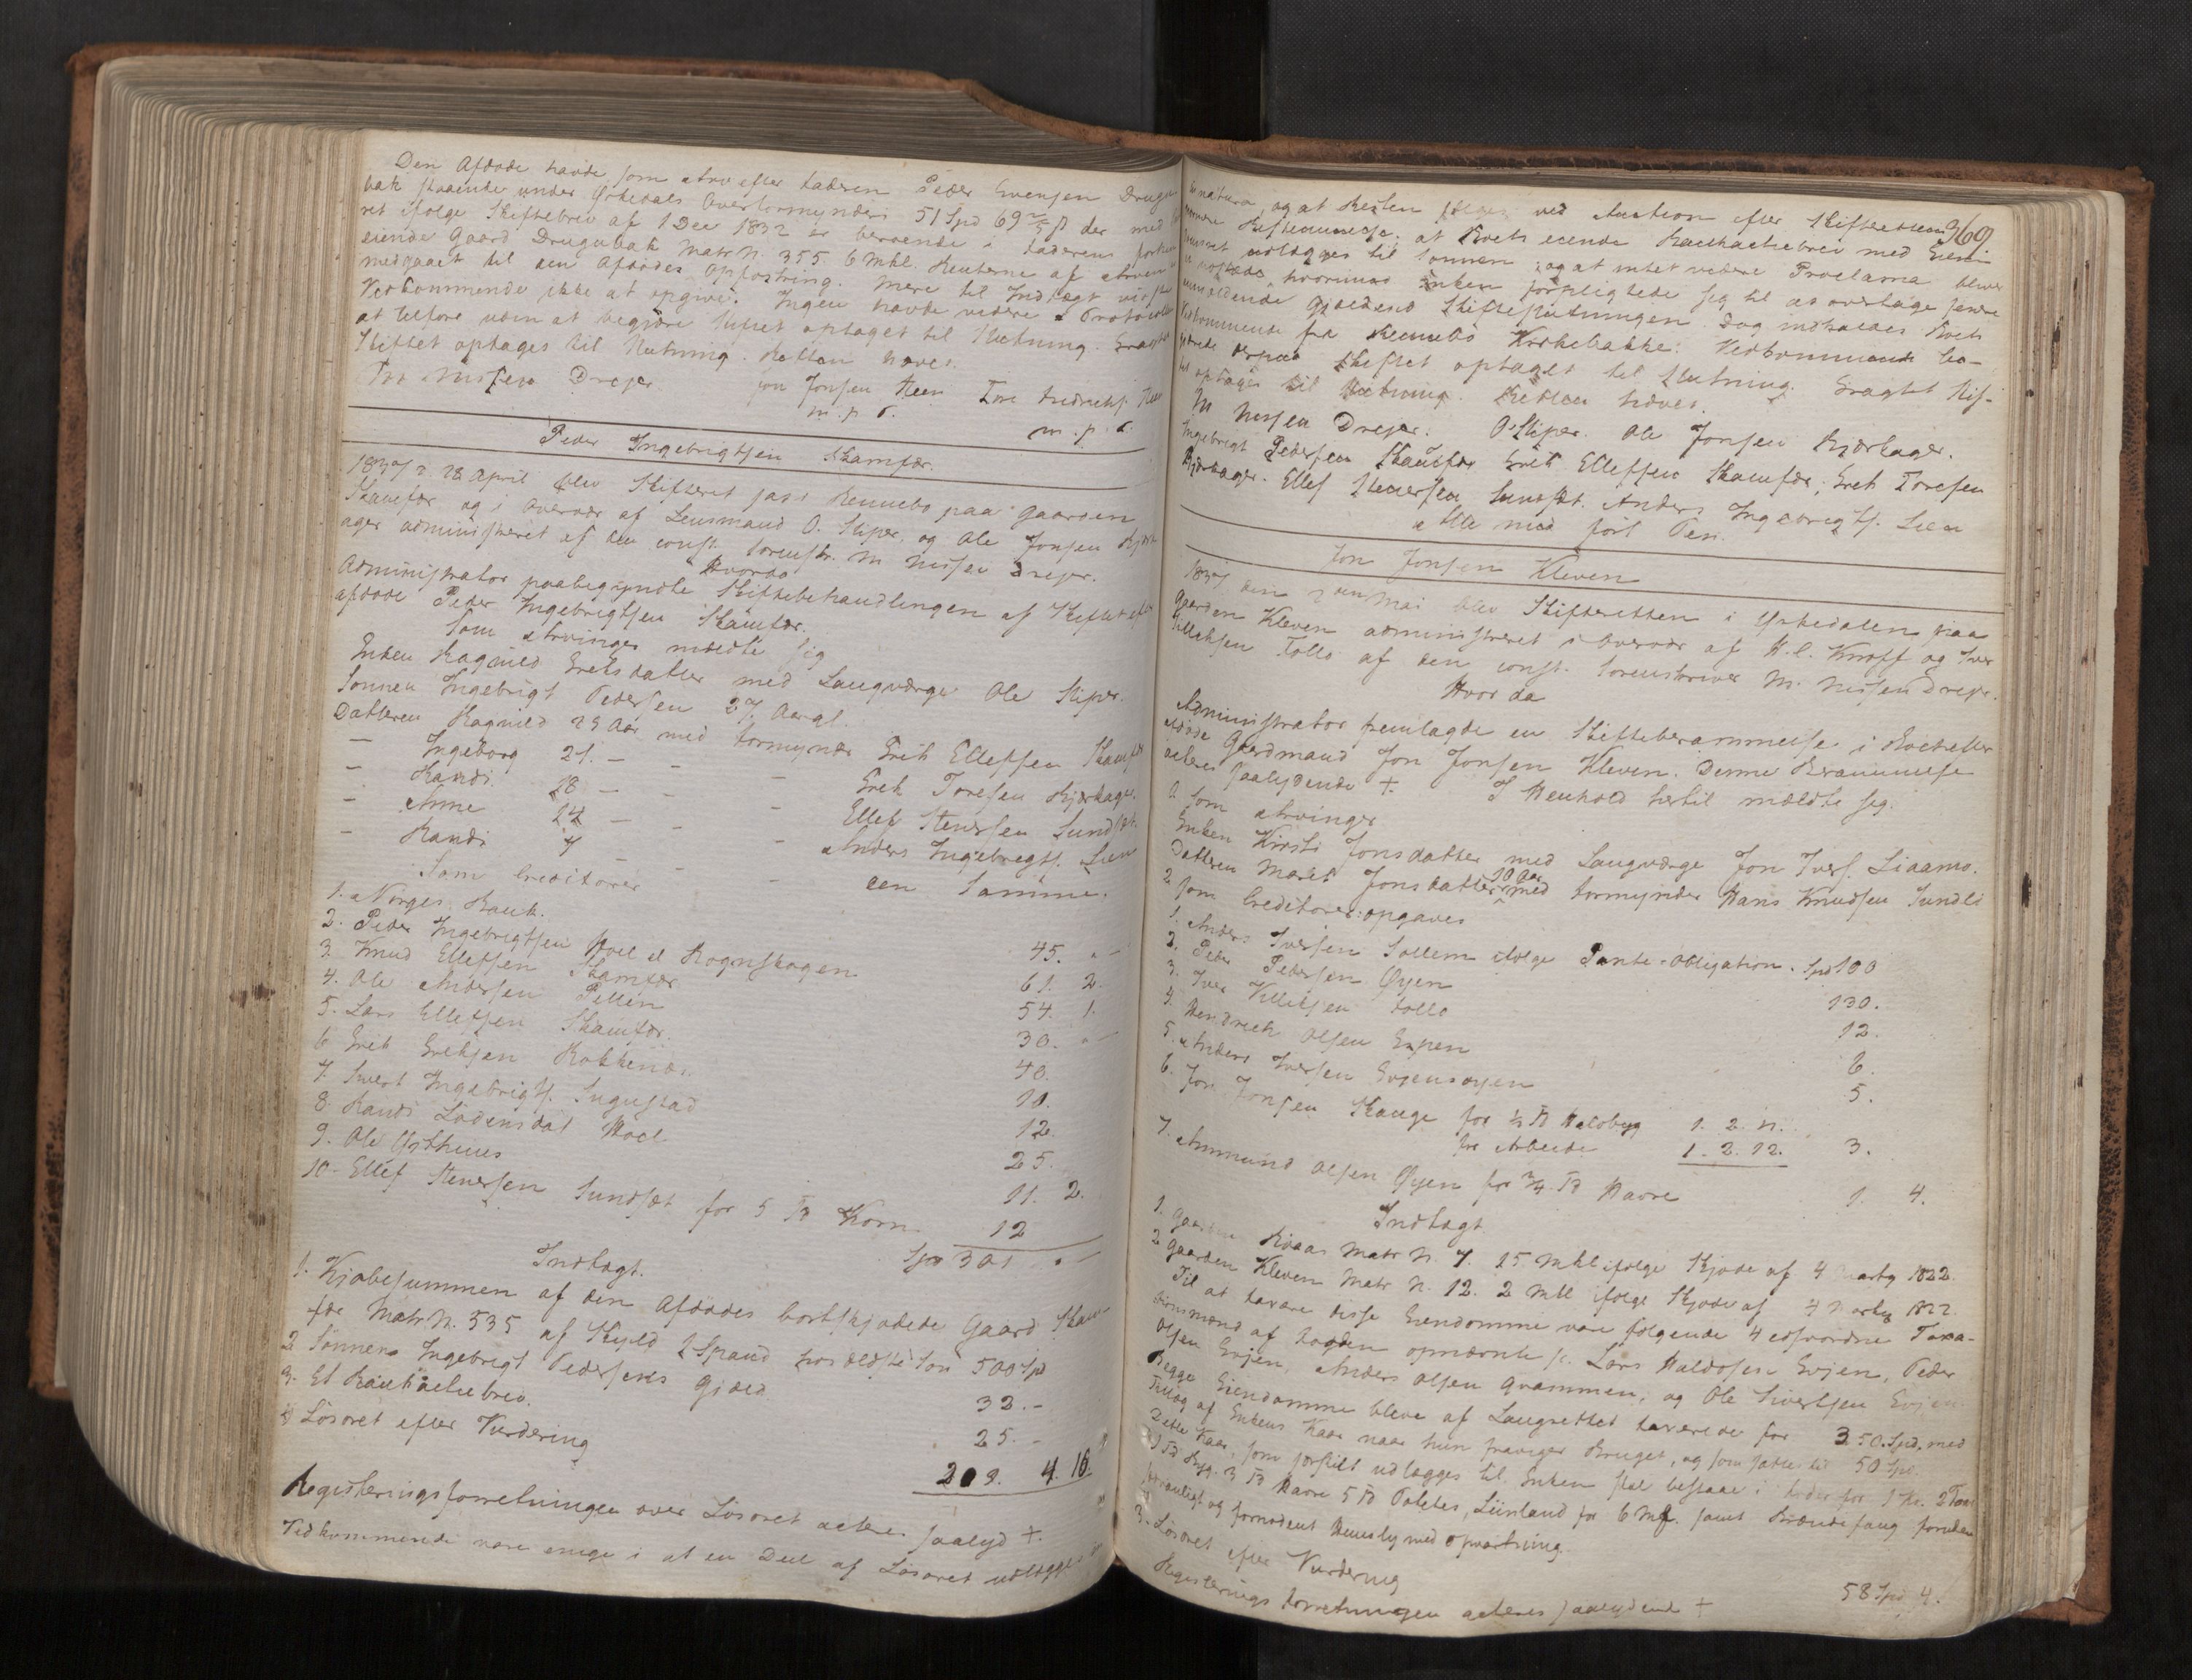 Den Afdøde havde som Arv efter Faderen Peder Evensen Drugu-
bak staaende under Ørkedals Overformynderi 51 Spd 69 2/5 ß der med
ret ifølge Skiftebrev af 1 Dec 1832 er beroende i Faderens
eiende Gaard Drugubak Matr N. 355 6 Mkl. Renterne af Arven
medgaaet til den Afdødes Opfostring. Mere til Indtægt vidste
Vedkommende ikke at opgive. Ingen havde videre Protocollen
at tilføre uden at begjære Skiftet optaget til Slutning. Eragtet
Skiftet optages til Slutning. Retten hævet.
Nissen Drejer Jon Jonsen Steen Tore Fredrichs.
m. p. P. m. p. P.
Peder Ingebrigtsen Skamfær.
1837 d 28 April blev Skifteret sat i Rennebo paa Gaarden
Skamfær og i Overvær af Lensmand O. Stiper, og Ole Jonsen Bjerk-
ager administreret af den const. Sorenskr. M Nissen Drejer.
Hvorda
Administrator paabegyndte Skiftebehandlingen af Skiftet efter
afdøde Peder Ingebrigtsen Skamfær.
Som Arvinger mældte sig
Enken Ragnild Eriksdatter med Laugværge Ole Stiper.
Sønnen Ingebrigt Pedersen 27 Aargl.
Datteren Ragnild 23 Aar med Formynder Erik Ellefsen Skamfær
— Ingeborg 21. — - - Erik Toresen Bjerkager.
— Randi 18 — - - Ellef Stenersen Sundset.
— Anne 14 — - - Anders Ingebrigts. Lien
— Randi 7 - - den Samme.
Som Creditorer
1. Norges Bank. 45. " —
2. Peder Ingebrigtsen Hoel el Rognskogen 61. 2.
3. Knud Ellefsen Skamfær 54. 1.
4. Ole Andersen Pellin 30. " —
5. Lars Ellefsen Skamfær. 40.
6 Erik Eriksen Rokkenes. 10.
7. Sivert Ingebrigts. Ingustad 12.
8. Randi Lødensdal Hoel 25.
9. Ole Østhuus 11. 2.
10 - Ellef Stenersen Sundset for 5 Td Korn. 12
Spd 301 " —
Indtægt.
1. Kjøbesummen af den Afdødes bortskjødede Gaard Skam-
fær Matr N. 535 af Skyld 2 Spand hos ældste Søn 500 Sp
2 Sønnens Ingebrigt Pedersens Gjæld 32. -
3. Et Bankactiebrev. 25. -
4 Løsøret efter Vurdering 209. 4. 16
Registeringsforretningen over Løsøret acteres saalyd +.
Vedkommende vare enige i at en Deel af Løsøret udlægges
369.
in natura, og at Resten sælges ved Auction efter Skifterettens
nærmere Bestemmelse. at Boets eiende Bankactiebrev med Eien-
dommet udlægges til Sønnen; og at intet videre Proclama bliver
udstædt, hvorimod Enken forpligtede sig til at overtage senere
anmeldende Gjæld end Skifteslutningen. Dog indkaldes Boets
Vedkommende fra Rennebo Kirkebakke. Vedkommende be-
gjærede derpaa Skiftet optaget til Slutning. Eragtet Skif-
tet optages til Slutning. Retten hævet.
M Nissen Drejer. O Stiper. Ole Jonsen Bjerkager.
Ingebrigt Pedersen Skamfær Erik Ellefsen Skamfær; Erik Toresen
Bjerkager. Ellef Stenersen Sundset. Anders Ingebrigts. Lien
Alle med ført Pen.
Jon Jonsen Kleven
1837 den 2den Mai blev Skifteretten i Ørkedalen paa
Gaarden Kleven administreret i Overvær af H. C. Knoff og Iver
Villiksen Follo af den const. Sorenskriver M. Nissen Drejer.
Hvor da
Administrator fremlagde en Skifteberammelse i Boet efter
afdøde Gaardmand Jon Jonsen Kleven. Denne Berammelse
acteres saalydende +. I Henhold hertil mældte sig.
1. Som Arvinger
Enken Kirsti Jonsdatter med Laugværge Jon Ivers. Liaamo.
Datteren Marit Jonsdatter 10 Aar med Formynder Hans Knudsen Sundli
2 Som Creditorer opgaves
1. Anders Iversen Sollem ifølge Pante-Obligation. Spd 100
2. Peder Pedersen Øyen 130.
3. Iver Villiksen Follo 12.
4. Hendrich Olsen Evjen 6.
5. Anders Iversen Evjensøyen 5.
6. Jon Jonsen Skauge for ½ Td Maltbyg 1. 2. 12.
for Arbeide 1. 2. 12. 3.
7. Ammund Olsen Øyen for ¾ Td Havre 1. 4.
Indtægt
1. Gaarden Raaa Matr N. 7. 15 Mkl ifølge Skjøde af 4 Marty 1822.
2 Gaarden Kleven Matr N. 12. 2 Mkl ifølge Skjøde af 4 Marty 1822.
Til at taxere disse Eiendomme vare følgende 4 edsvorne Taxa-
tionsmænd af Fogden opnævnte sc. Lars Haldosen Evjen, Peder
Olsen Evjen, Anders Olsen Grammen, og Ole Sivertsen Evjen.
Begge Eiendomme bleve af Laugrettet taxerede for 350. Spd. med
Fradrag af Enkens Kaar naar hun fraviger Bruget, og som sættes til 50 Spd.
Dette Kaar, som forskilt udlægges til Enken skal bestaae i Foder for 1 Ko. 2 Faar
½ Td Byg. 3 Td Havre 5 Td Potetes, Liinland for 6 Mk. samt Brændefang foruden
forsvarligt og fornødent Huusly med Opvartning.
3. Løsøret efter Vurdering 58 Spd 4.
Registerings Forretningen acteres saalydende +